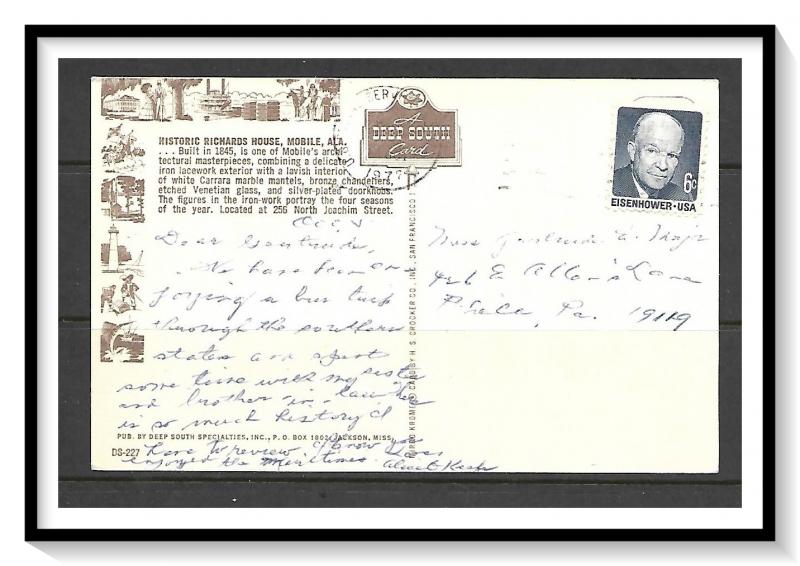 HISTORIC RICHARDS HOUSE, MOBILE, ALA.
. . . Built in 1845, is one of Mobile's archi-
tectural masterpieces, combining a delicate
iron lacework exterior with a lavish interior
of white Carrara marble mantels, bronze chandeliers,
etched Venetian glass, and silver-plated doorknobs.
The figures in the iron-work portray the four seasons
of the year. Located at 256 North Joachim Street.
A
DEEP SOUTH
Card
1971
6c
EISENHOWER·USA
Dear Gertrude,
We have been en-
joying a bus trip
through the southern
states and spent
some time with my sister
and brother-in-law. There
is so much history I'd
love to review. I know you
enjoyed the Maritimes. Love,
Miss Gertrude A.
E Allen's Lane
Phila, Pa. 19119
CARD BY H. S. CROCKER CO., INC., SAN FRANCISCO 1
PUB. BY DEEP SOUTH SPECIALTIES, INC., P. O. BOX 1802, JACKSON, MISS.
DS-227